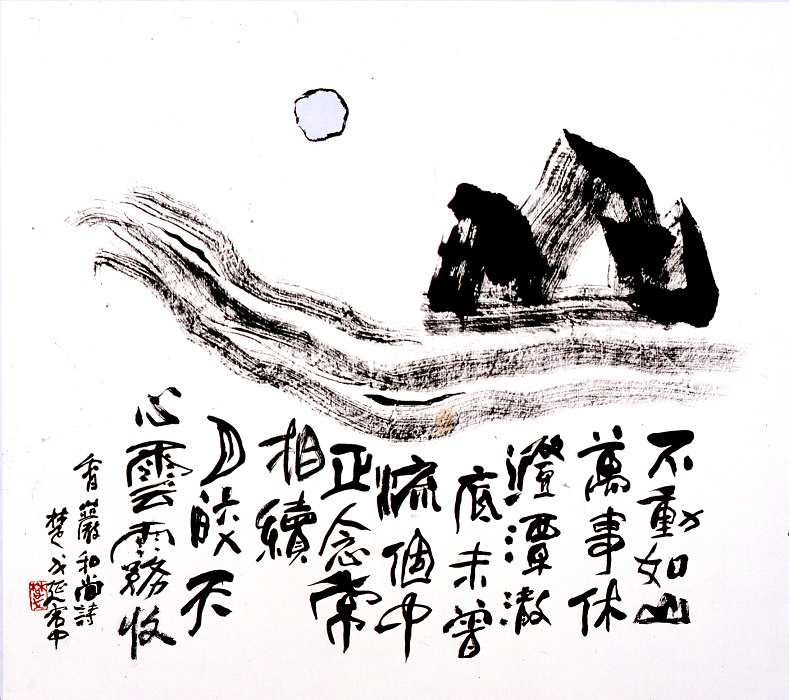 不動如山
萬事休
澄潭澈
底未曾
流個中
正念常
相續
月皎天
心雲霧收
香嚴和尚詩
楚戈